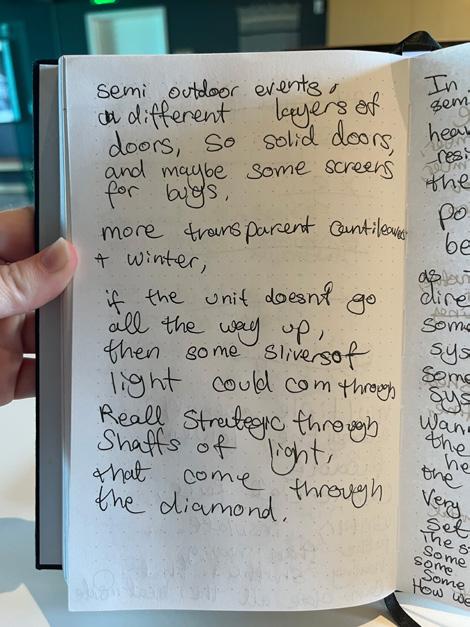 semi outdoor events,
a different layers of
doors, so solid doors,
and maybe some screens
for bugs,
more transparent cantileavers
+ winter,
if the unit doesn't go
all the way up,
then some slivers of
light could com through
Reall Strategic through
Shaffs of light,
that come through
the diamond.
In
semi
hea
resi
the
po
be
as
dire
som
sys
some
sys
wan
the
he
the
Very
set
The s
some
some
Some
How we